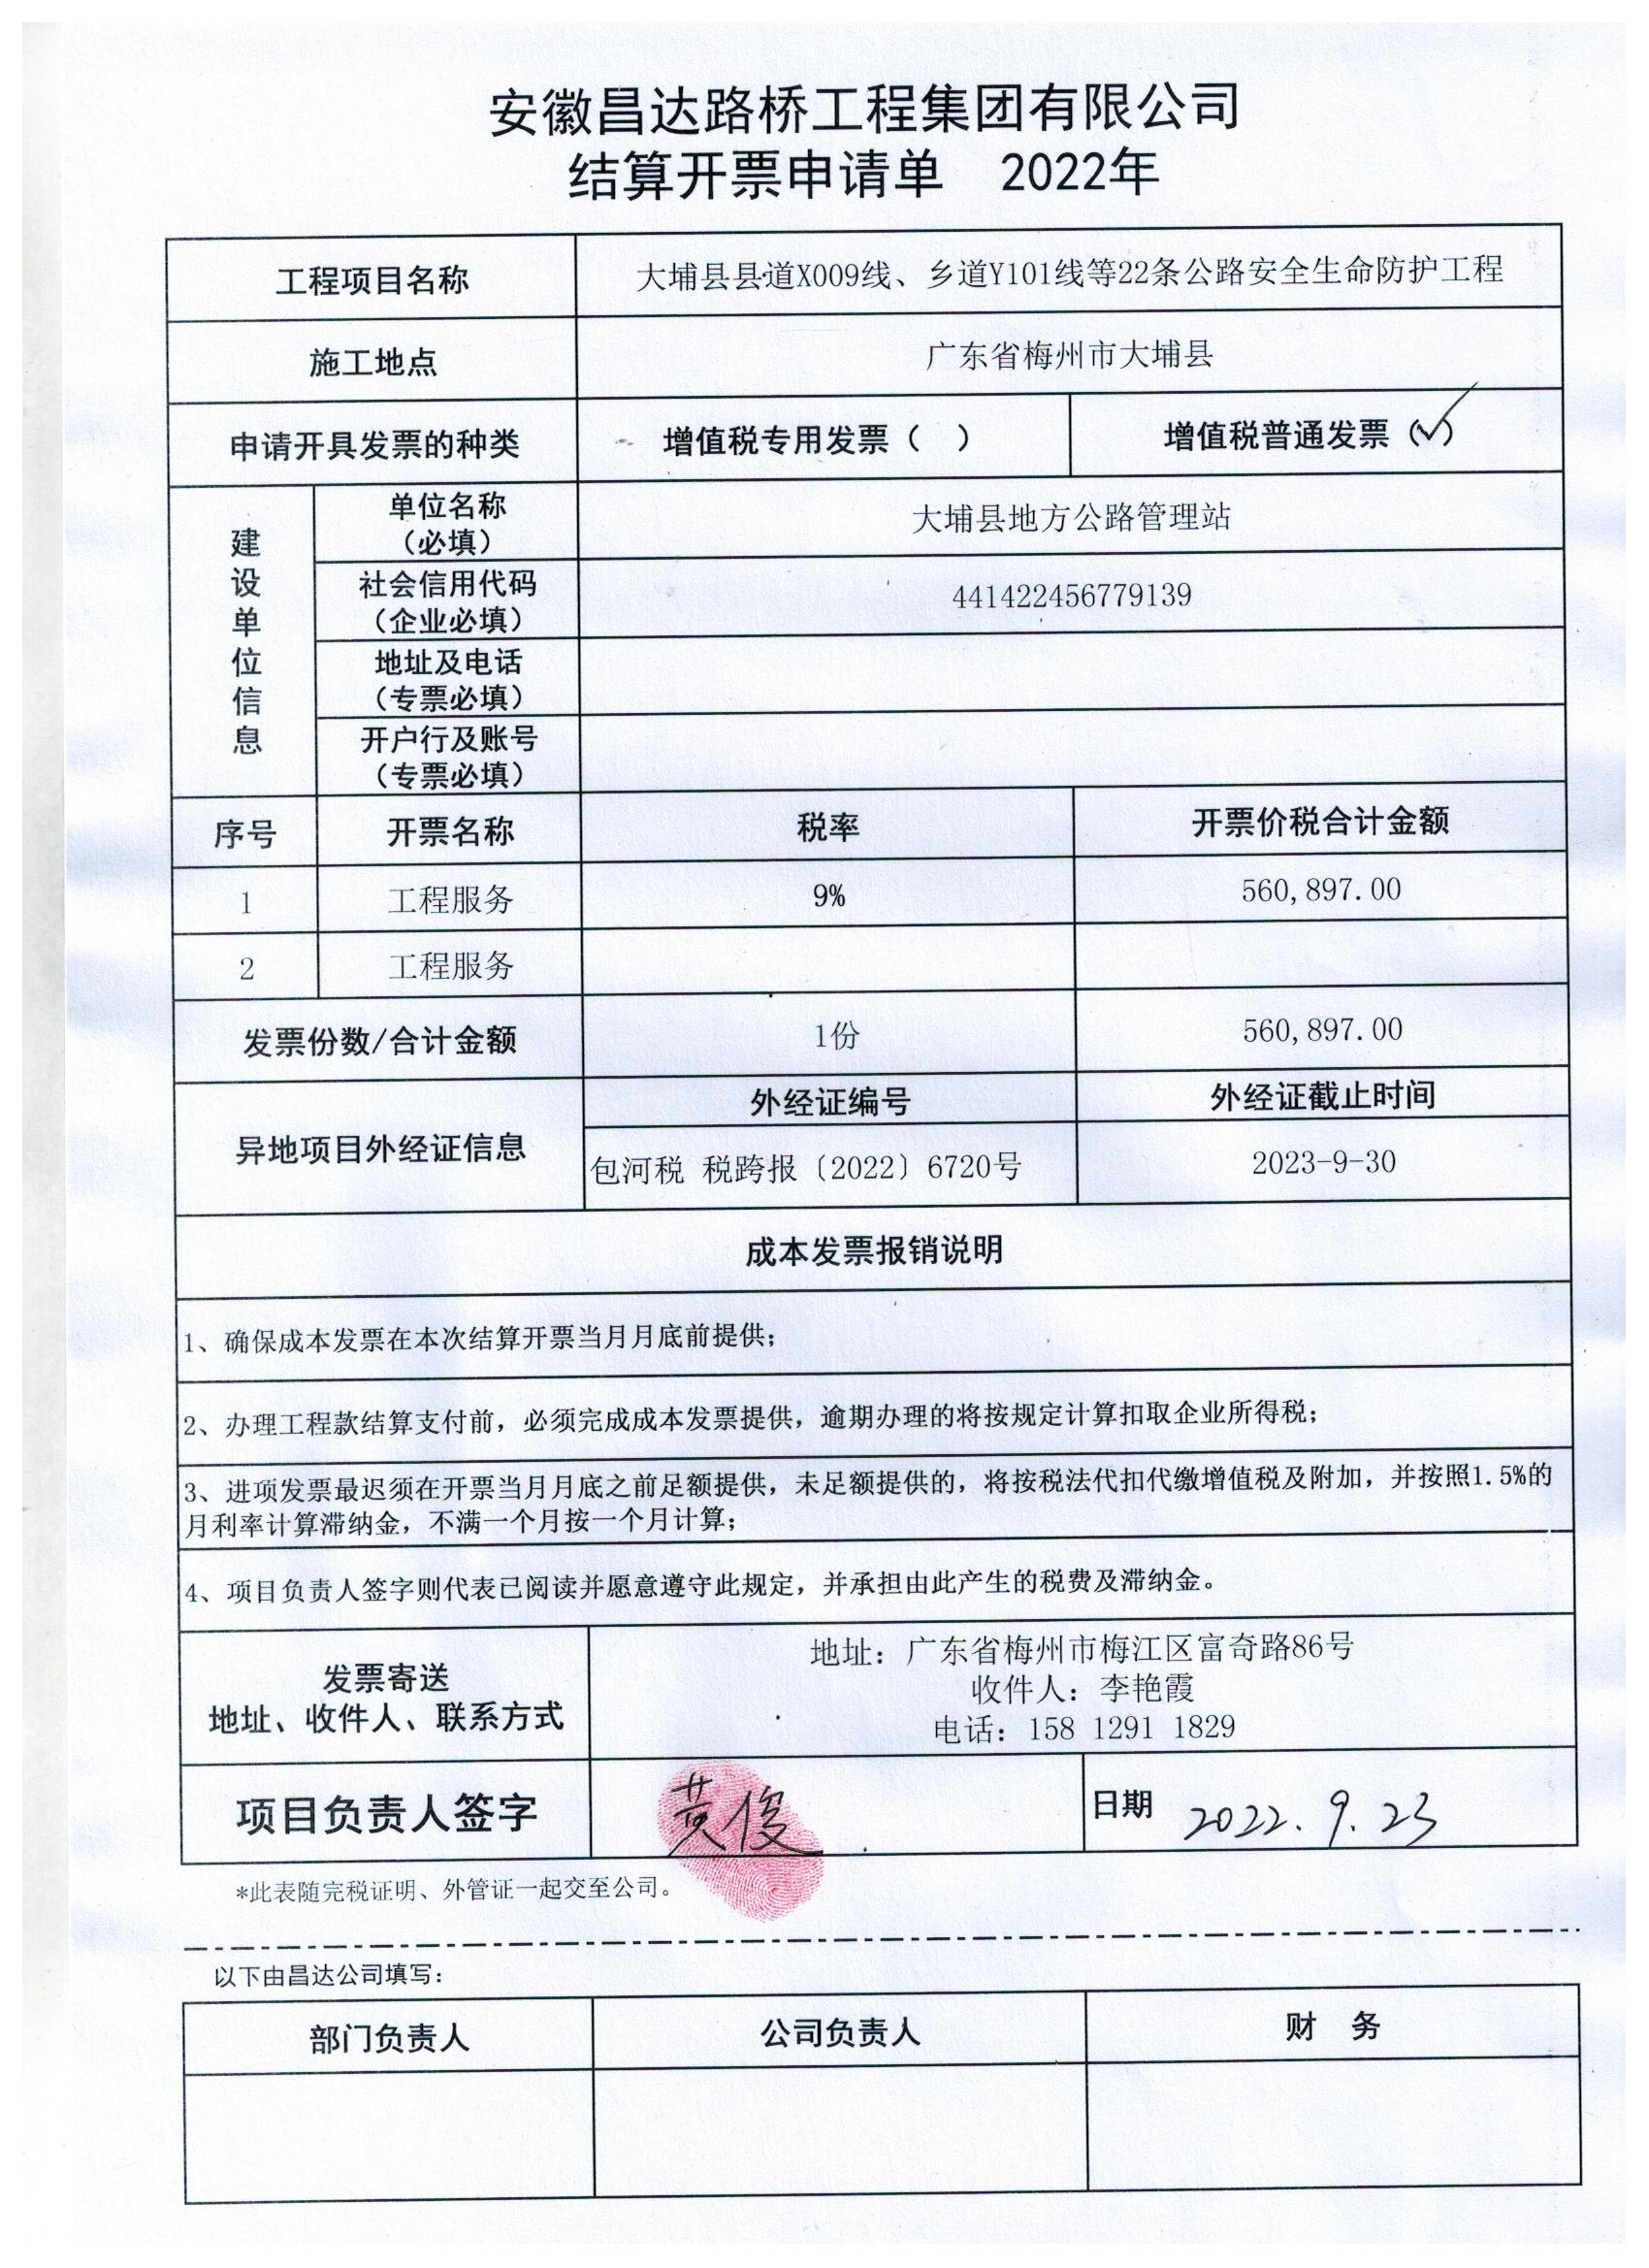 安徽昌达路桥工程集团有限公司
结算开票申请单 2022年
工程项目名称 大埔县县道X009线、乡道Y101线等22条公路安全生命防护工程
施工地点 广东省梅州市大埔县
申请开具发票的种类 增值税专用发票( ) 增值税普通发票(✓)
建设单位信息
单位名称
(必填)
大埔县地方公路管理站
社会信用代码
(企业必填)
441422456779139
地址及电话
(专票必填)
开户行及账号
(专票必填)
序号 开票名称 税率 开票价税合计金额
1 工程服务 9% 560,897.00
2 工程服务
发票份数/合计金额 1份 560,897.00
异地项目外经证信息
外经证编号 外经证截止时间
包河税 税跨报〔2022〕6720号 2023-9-30
成本发票报销说明
1、确保成本发票在本次结算开票当月月底前提供;
2、办理工程款结算支付前,必须完成成本发票提供,逾期办理的将按规定计算扣取企业所得税;
3、进项发票最迟须在开票当月月底之前足额提供,未足额提供的,将按税法代扣代缴增值税及附加,并按照1.5%的
月利率计算滞纳金,不满一个月按一个月计算;
4、项目负责人签字则代表已阅读并愿意遵守此规定,并承担由此产生的税费及滞纳金。
发票寄送
地址、收件人、联系方式
地址:广东省梅州市梅江区富奇路86号
收件人:李艳霞
电话:158 1291 1829
项目负责人签字 黄俊 日期 2022.9.23
*此表随完税证明、外管证一起交至公司。
以下由昌达公司填写:
部门负责人 公司负责人 财 务